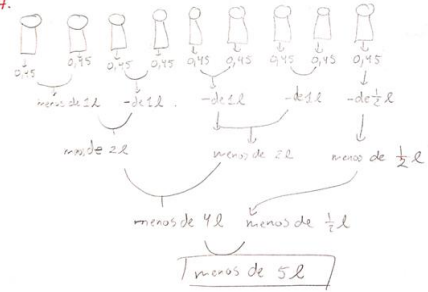 7.
0,45 0,45 0,45 0,45 0,45 0,45 0,45 0,45 0,45
menos de 1l -de 1l. -de 1l -de 1l -de ½ l
de 2l menos de 2l menos de ½ l
menos de 4l menos de ½ l
menos de 5l